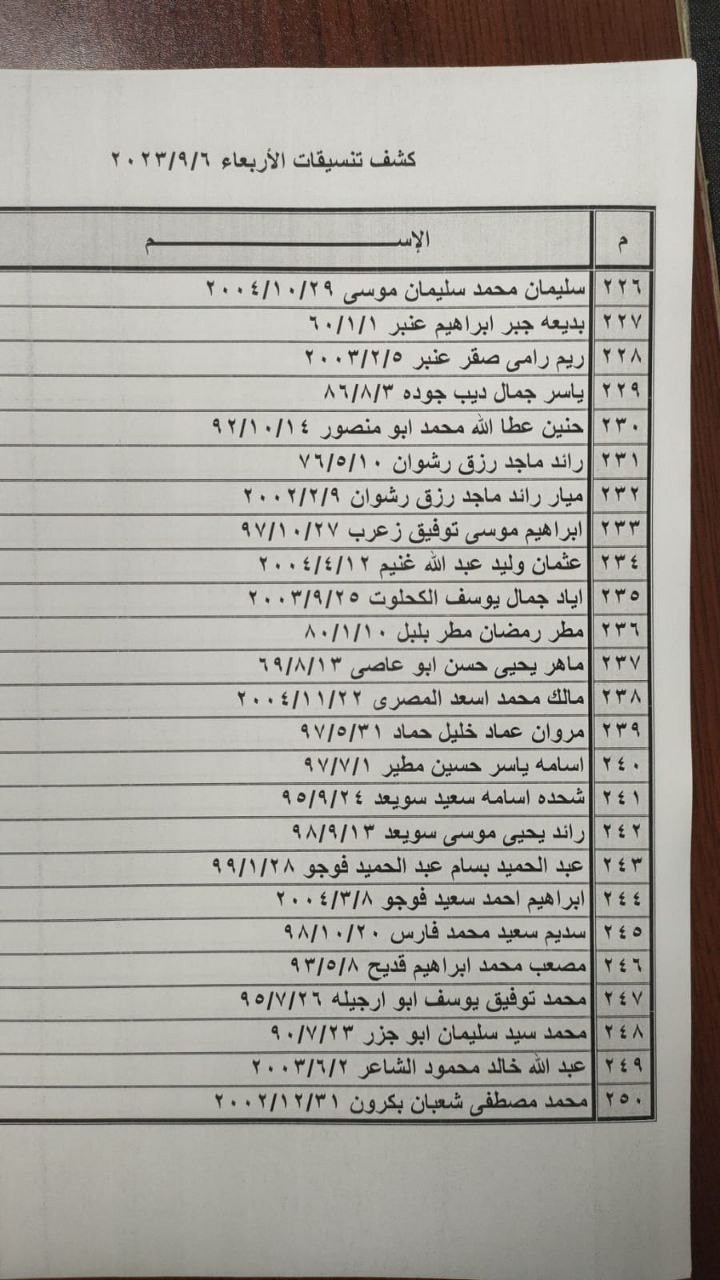 كشف تنسيقات الأربعاء ٢٠٢٣/٩/٦
م الإســـــــــــــــــــم
٢٢٦ سليمان محمد سليمان موسى ٢٠٠٤/١٠/٢٩
٢٢٧ بديعه جبر ابراهيم عنبر ٦٠/١/١
٢٢٨ ريم رامى صقر عنبر ٢٠٠٣/٢/٥
٢٢٩ ياسر جمال ديب جوده ٨٦/٨/٣
٢٣٠ حنين عطا الله محمد ابو منصور ٩٢/١٠/١٤
٢٣١ رائد ماجد رزق رشوان ٧٦/٥/١٠
٢٣٢ ميار رائد ماجد رزق رشوان ٢٠٠٢/٢/٩
٢٣٣ ابراهيم موسى توفيق زعرب ٩٧/١٠/٢٧
٢٣٤ عثمان وليد عبد الله غنيم ٢٠٠٤/٤/١٢
٢٣٥ اياد جمال يوسف الكحلوت ٢٠٠٣/٩/٢٥
٢٣٦ مطر رمضان مطر بلبل ٨٠/١/١٠
٢٣٧ ماهر يحيى حسن ابو عاصى ٦٩/٨/١٣
٢٣٨ مالك محمد اسعد المصرى ٢٠٠٤/١١/٢٢
٢٣٩ مروان عماد خليل حماد ٩٧/٥/٣١
٢٤٠ اسامه ياسر حسين مطير ٩٧/٧/١
٢٤١ شحده اسامه سعيد سويعد ٩٥/٩/٢٤
٢٤٢ رائد يحيى موسى سويعد ٩٨/٩/١٣
٢٤٣ عبد الحميد بسام عبد الحميد فوجو ٩٩/١/٢٨
٢٤٤ ابراهيم احمد سعيد فوجو ٢٠٠٤/٣/٨
٢٤٥ سديم سعيد محمد فارس ٩٨/١٠/٢٠
٢٤٦ مصعب محمد ابراهيم قديح ٩٣/٥/٨
٢٤٧ محمد توفيق يوسف ابو ارجيله ٩٥/٧/٢٦
٢٤٨ محمد سيد سليمان ابو جزر ٩٠/٧/٢٣
٢٤٩ عبد الله خالد محمود الشاعر ٢٠٠٣/٦/٢
٢٥٠ محمد مصطفى شعبان بكرون ٢٠٠٢/١٢/٣١